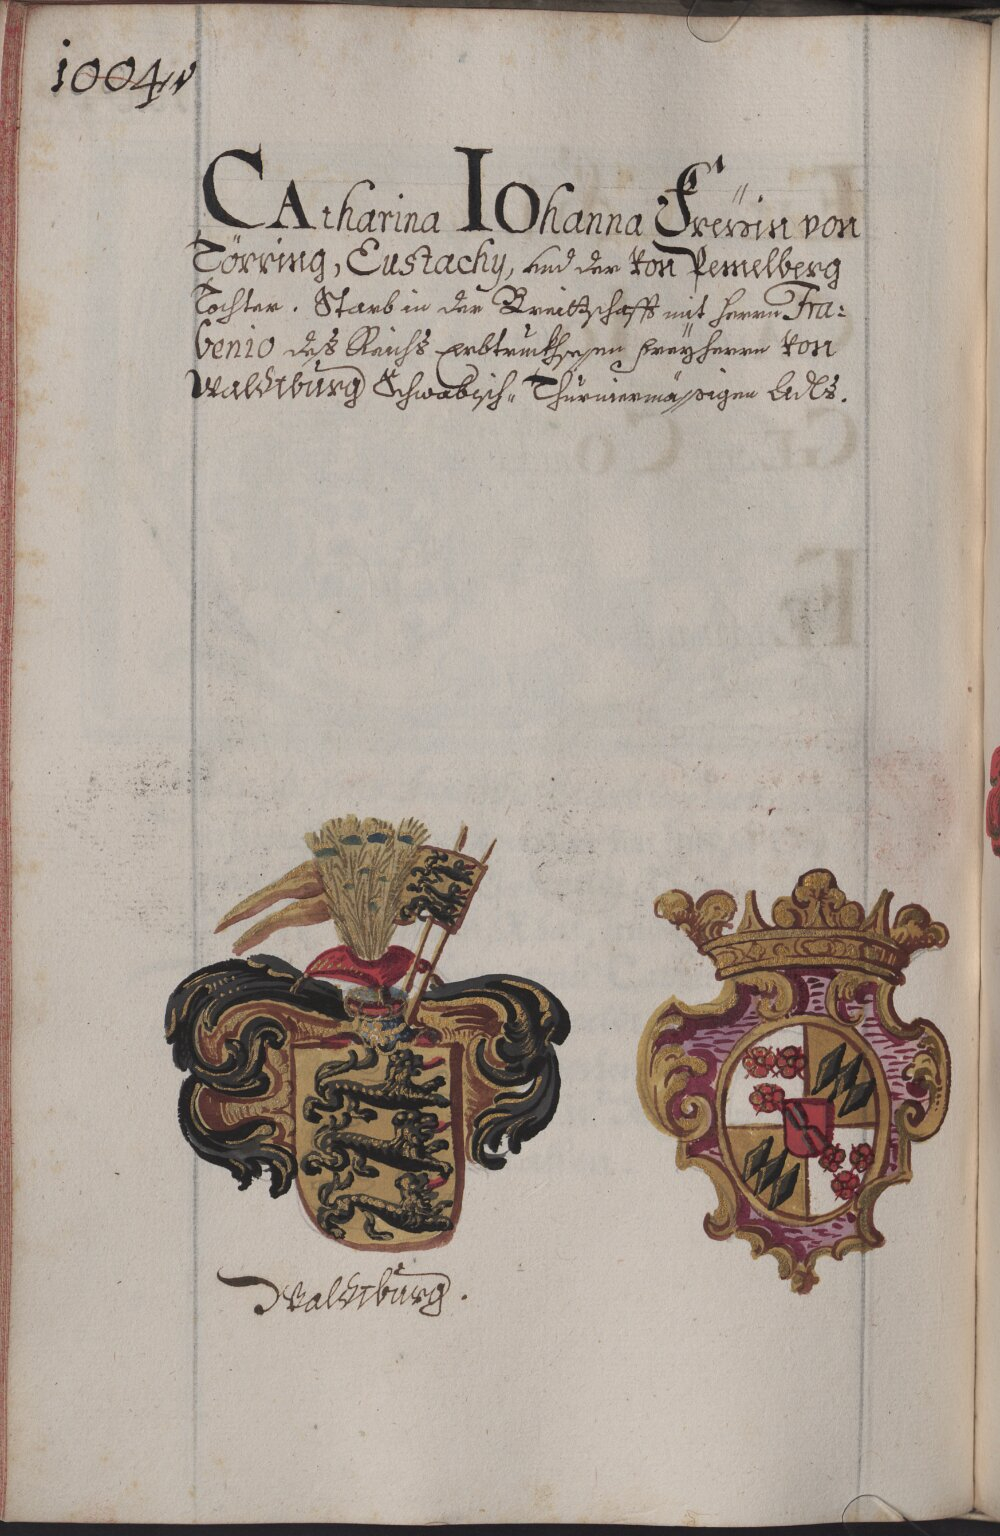 1004v
CAtharina IOhanna Freÿin von
Törring, Eustachy, und der von Pemelberg
Tochter. Starb in der Breittschafft mit Herrn Fra-
benio deß Reichs Erbtruckhsessen Freÿherrn von
Waldtburg Schwäbisch. Thurniermässigen Adls.
Waldtburg.